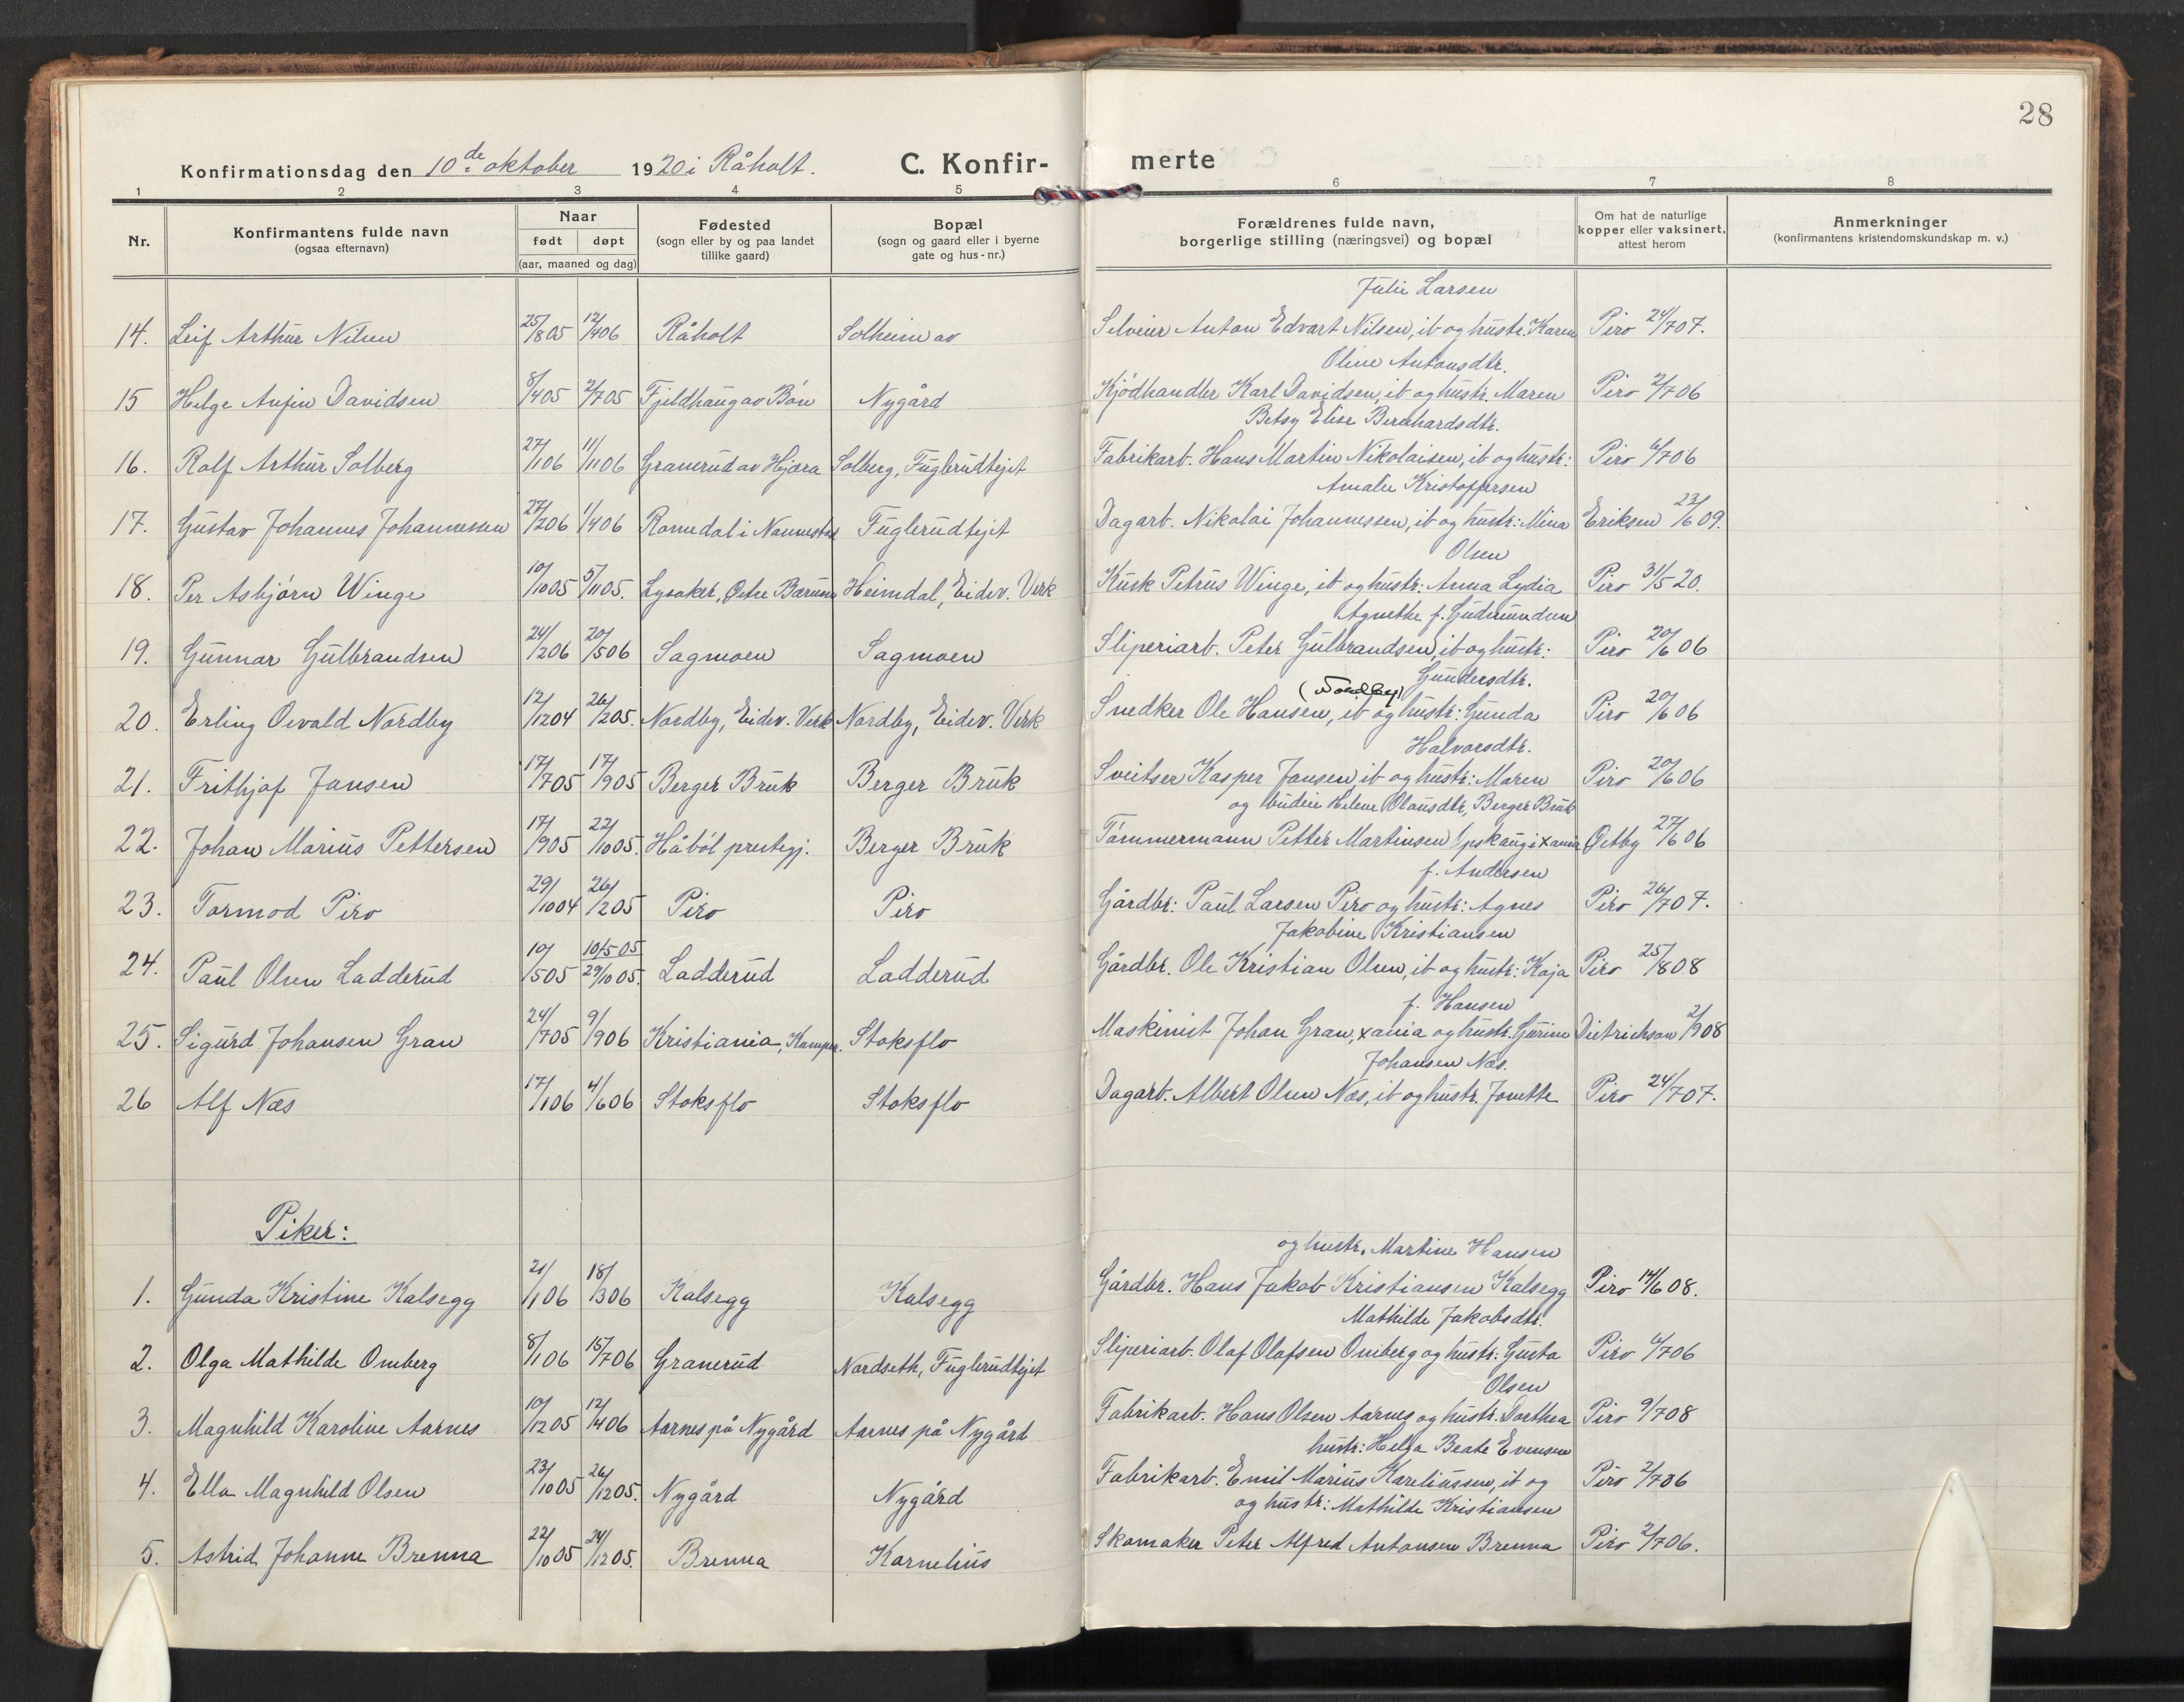 28
Konfirmationsdag den 10de oktober 1920 i Råholt. C. Konfir- merte
1 2 3 4 5 6 7 8
Nr. Konfirmantens fulde navn (ogsaa efternavn) Naar født døpt (aar, maaned og dag) Fødested (sogn eller by og paa landet tillike gaard) Bopæl (sogn og gaard eller i byerne gate og hus-nr.) Forældrenes fulde navn, borgerlige stilling (næringsvei) og bopæl Om hat de naturlige kopper eller vaksinert, attest herom Anmerkninger (konfirmantens kristendomskundskap m. v.)
Julie Larsen
14. Leif Arthur Nilsen 25/8 05 12/4 06 Råholt Solheim av Selveier Anton Edvart Nilsen, ib og hustr. Karen Piro 24/7 07.
Oline Antonsdtr.
15 Helge Anfin Davidsen 8/4 05 2/7 05 Fjeldhaug av Bøn Nygård Kjødhandler Karl Davidsen, ib og hustr. Maren Piro 2/7 06
Betsy Elise Bernhardsdtr.
16. Rolf Arthur Solberg 27/1 06 11/11 06 Granerud av Hjæra Solberg, Fuglerudtejet Fabrikarb. Hans Martin Nikolaisen, ib og hustr: Piro 6/7 06
Amalie Kristoffersen
17. Gustav Johannes Johannessen 27/2 06 1/4 06 Romedal i Nannestad Fuglerudtejet Dagarb. Nikolai Johannessen, ib og hustr: Mina Eriksen 23/6 09.
Olsen
18. Per Asbjørn Winge 10/10 05 5/11 05. Lysaker, Østre Bærum Heimdal, Eidsv. Verk Kusk Petrus Winge, ib og hustr: Anna Lydia Piro 31/5 20.
Agnethe f. Gudmundsen
19. Gunnar Gulbrandsen 24/2 06 20/5 06 Sagmoen Sagmoen Sliperiarb. Peter Gulbrandsen, ib og hustr: Piro 20/6 06
(Nordby) Gundersdtr.
20. Erling Osvald Nordby 12/12 04 26/12 05. Nordby, Eidsv. Verk Nordby, Eidsv. Verk Snedker Ole Hansen, ib og hustr: Gunda Piro 20/6 06
Halvorsdtr.
21. Frithjof Jansen 17/7 05 17/9 05 Berger Bruk Berger Bruk Sveitser Kasper Jansen, ib og hustr: Maren Piro 20/6 06
og budeie Helene Olausdtr, Berger Bruk
22. Johan Marius Pettersen 17/9 05 22/10 05. Håbøl prestegj. Berger Bruk Tømmermann Petter Martinsen i Xania Østby 27/6 06
f. Andersen
23. Tormod Piro 29/10 04 26/2 05 Piro Piro Gårdbr: Paul Larsen Piro og hustr: Agnes Piro 26/7 07.
Jakobine Kristiansen
24. Paul Olsen Ladderud 10/5 05 10/5 05 29/10 05. Ladderud Ladderud Gårdbr. Ole Kristian Olsen, ib og hustr: Kaja Piro 25/8 08
f. Hansen
25. Sigurd Johansen Gran 24/7 05 9/9 06 Kristiania, Kampen. Stoksflo Maskinist Johan Gran, Xania og hustr. Gurine Dietrichson 2/9 08
Johansen Næs.
26 Alf Næs 17/1 06 4/6 06 Stoksflo Stoksflo Dagarb. Albert Olsen Næs, ib og hustr. Jonette Piro 24/7 07.
Piker:
og hustr. Martine Hansen
1. Gunda Kristine Kalsegg 21/1 06 18/3 06 Kalsegg Kalsegg Gårdbr. Hans Jakob Kristiansen Kalsegg Piro 14/6 08.
Mathilde Jakobsdtr.
2. Olga Mathilde Omberg 8/1 06 15/7 06 Granerud Nordseth, Fuglerudtejet Sliperiarb. Olaf Olafsen Omberg og hustr: Gusta Piro 6/7 06
Olsen
3. Magnhild Karoline Aarnes 10/12 05 12/4 06 Aarnes på Nygård Aarnes på Nygård Fabrikarb. Hans Olsen Aarnes og hustr. Dorthea Piro 9/7 08
hustr: Helga Beate Evensen
4. Ella Magnhild Olsen 23/10 05 26/12 05. Nygård Nygård Fabrikarb. Emil Marius Kareliussen, ib og Piro 2/7 06
og hustr: Mathilde Kristiansen
5. Astrid Johanne Brenna 22/10 05 24/12 05. Brenna Kornelius Skomaker Peter Alfred Antonsen Brenna Piro 2/7 06.